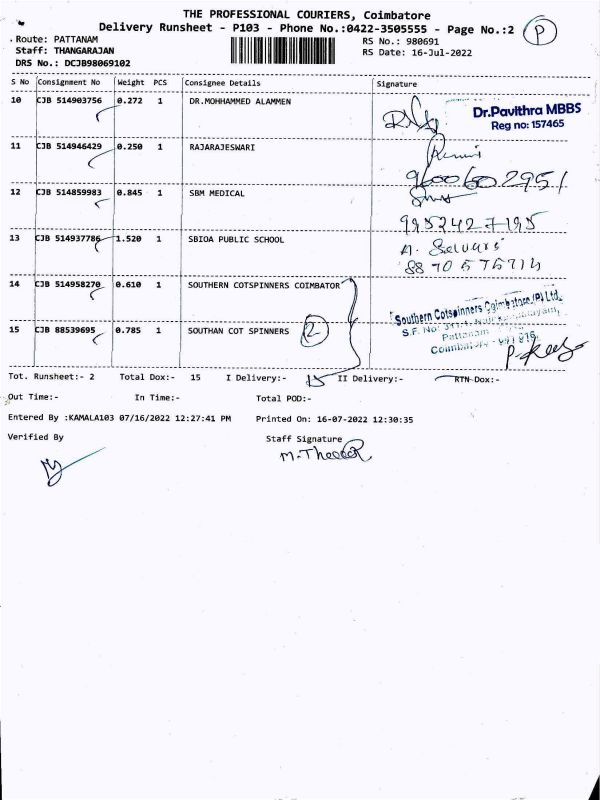 THE PROFESSIONAL COURIERS, Coimbatore
Delivery Runsheet - P103 - Phone No.:0422-3505555 - Page No.:2 P
Route: PATTANAM RS No.: 980691
Staff: THANGARAJAN RS Date: 16-Jul-2022
DRS No.: DCJB98069102
S No Consignment No Weight PCS Consignee Details Signature
10 CJB 514903756 0.272 1 DR.MOHHAMMED ALAMMEN
Dr.Pavithra MBBS
Reg no: 157465
11 CJB 514946429 0.250 1 RAJARAJESWARI
9600602951
12 CJB 514859983 0.845 1 SBM MEDICAL
9952427195
13 CJB 514937786 1.520 1 SBIOA PUBLIC SCHOOL
8870575714
14 CJB 514958270 0.610 1 SOUTHERN COTSPINNERS COIMBATOR
Southern Cotspinners Coimbatore (P) Ltd.
15 CJB 88539695 0.785 1 SOUTHAN COT SPINNERS 2
S.F. No
Pattanam
Tot. Runsheet:- 2 Total Dox:- 15 I Delivery:- 15 II Delivery:- RTN Dox:-
Out Time:- In Time:- Total POD:-
Entered By :KAMALA103 07/16/2022 12:27:41 PM Printed On: 16-07-2022 12:30:35
Verified By Staff Signature